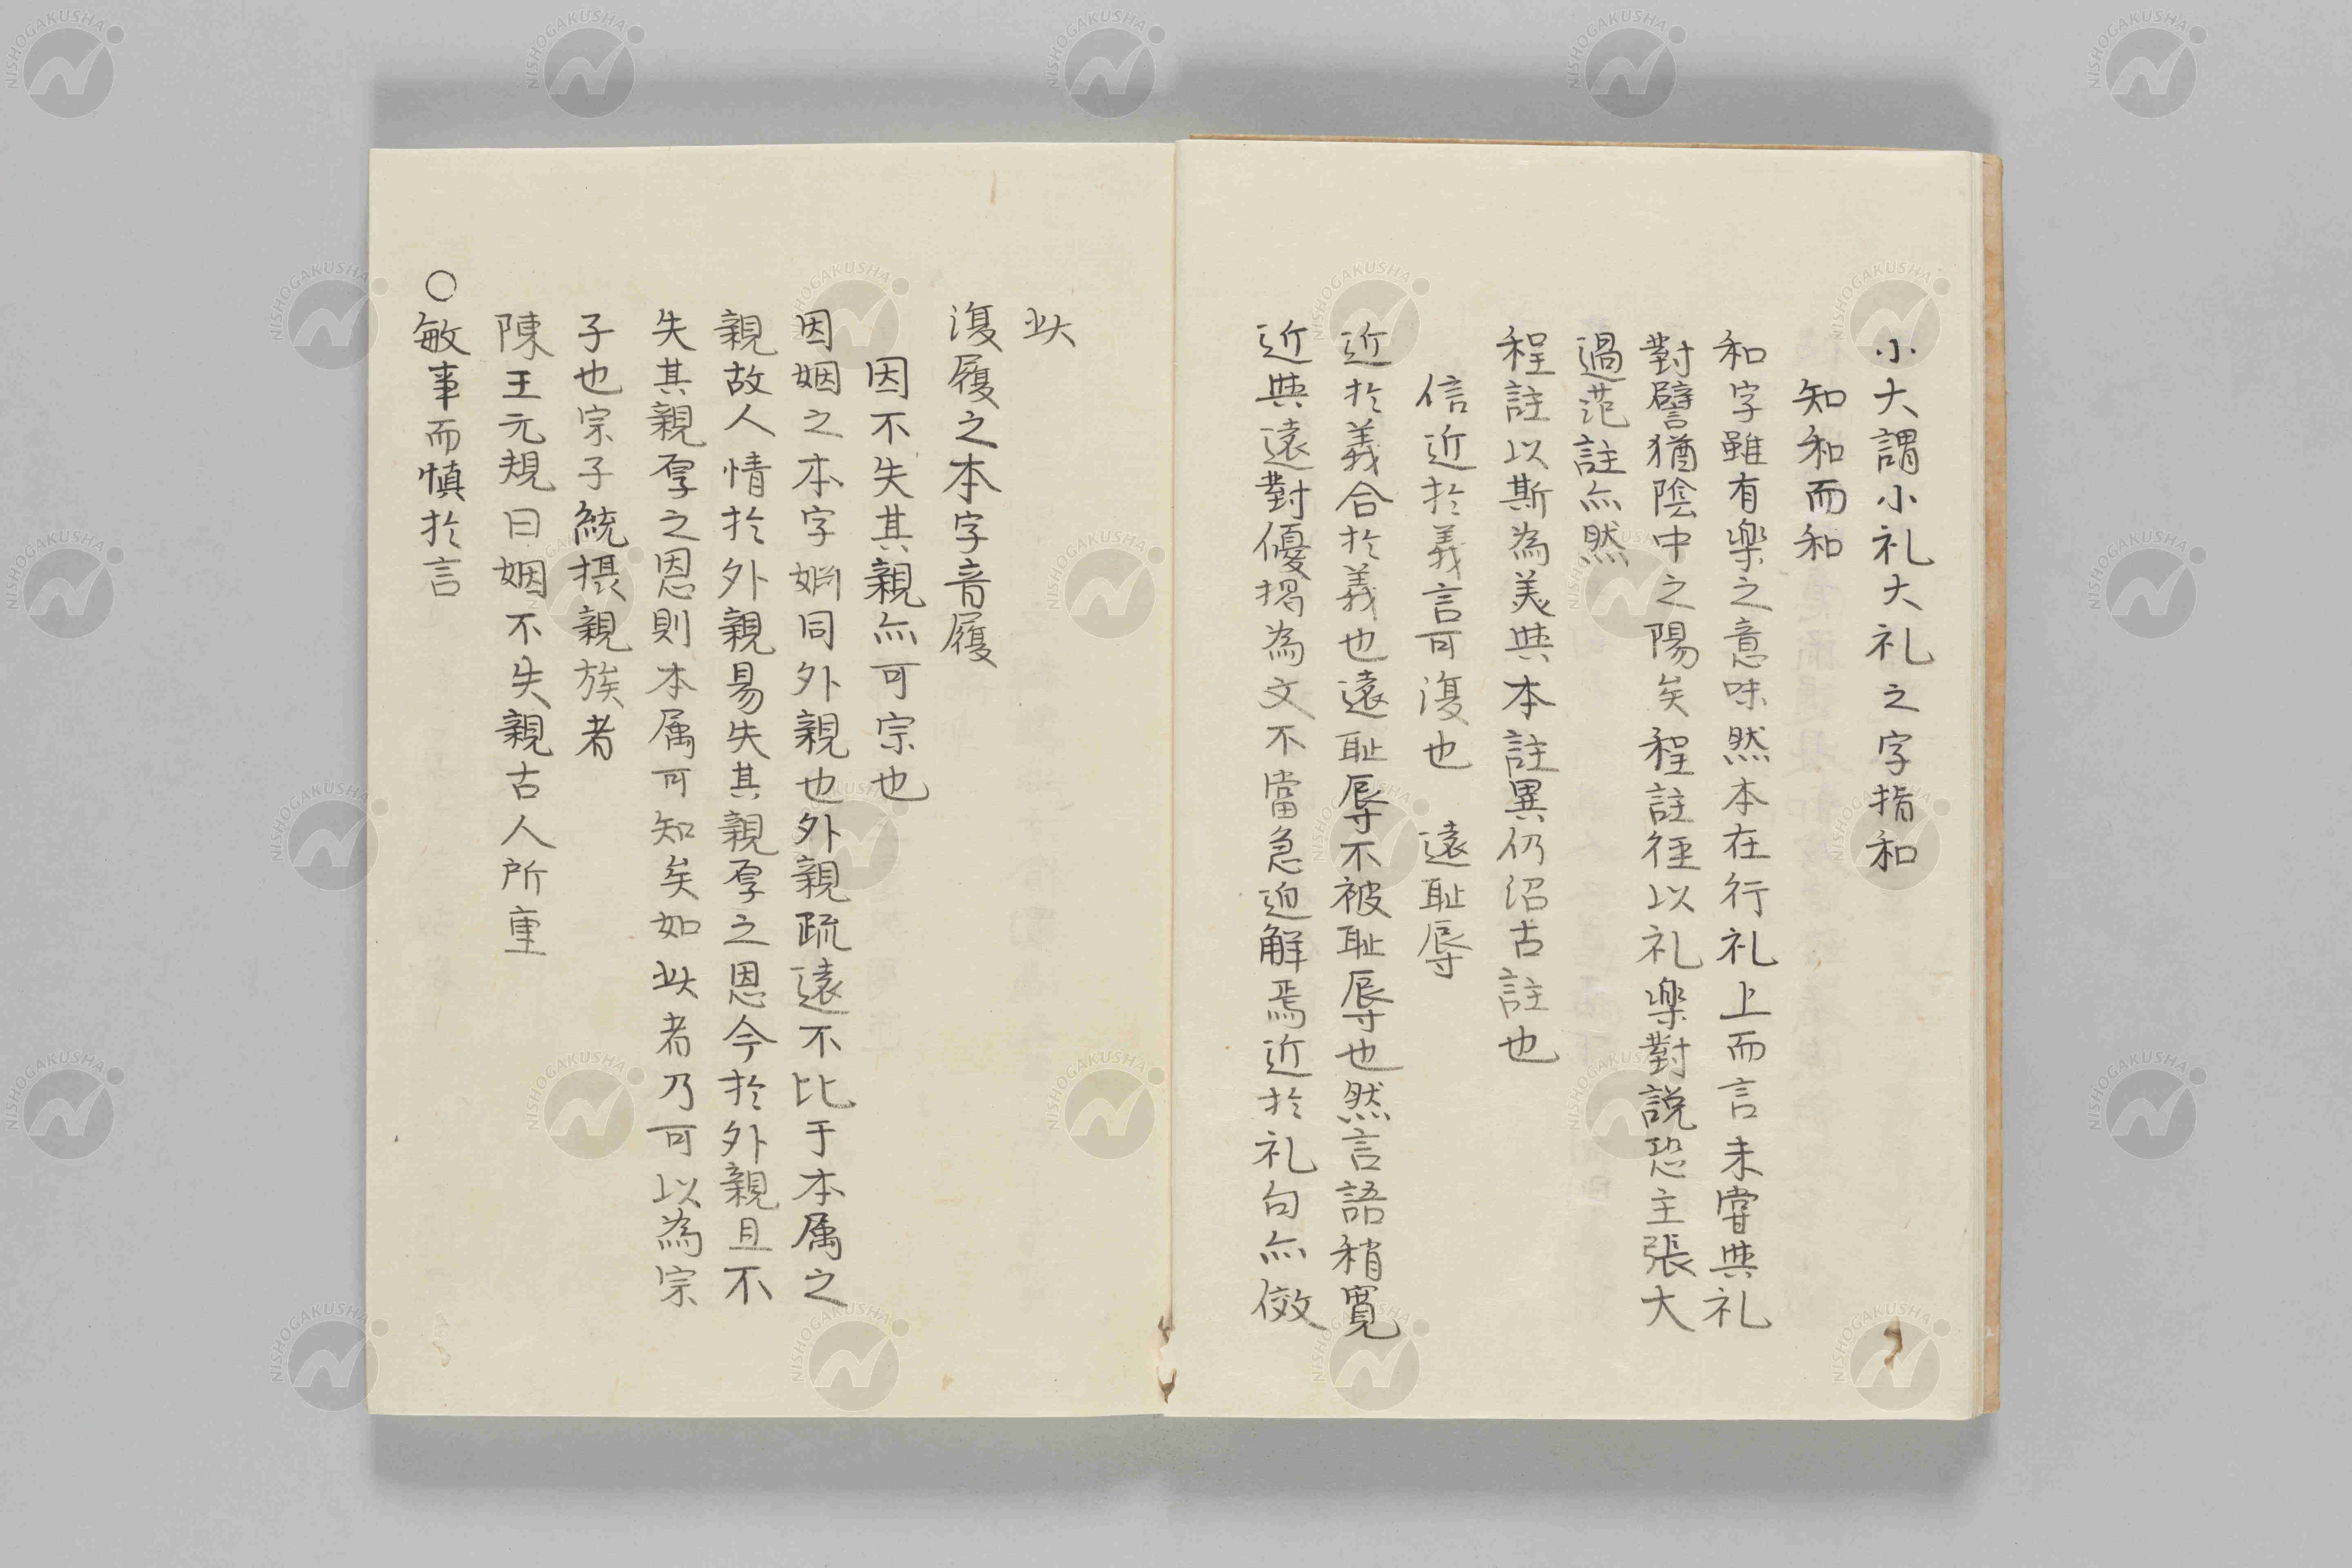 小大謂小礼大礼之字指和
知和而和
和字雖有楽之意味然本在行礼上而言未嘗與礼
對譬猶陰中之陽矣程註徑以礼楽對説恐主張大
過范註亦然
程註以斯為美與本註異仍沿古註也
信近於義言可復也　遠耻辱
近於義合於義也遠耻辱不被耻辱也然言語稍寬
近與遠對優揭為文不當急迫解焉近於礼句亦傚
此
復履之本字音履
因不失其親亦可宗也
因姻之本字婣同外親也外親疏遠不比于本属之
親故人情於外親易失其親厚之恩今於外親且不
失其親厚之恩則本属可知矣如此者乃可以為宗
子也宗子統摂親族者
陳王元規曰姻不失親古人所重
○敏事而慎於言
NISHOGAKUSHA